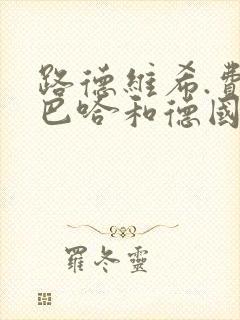 路德維希.費
巴哈和德國
羅冬靈